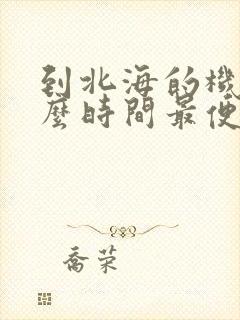 到北海的機
麼時間最便
喬荣